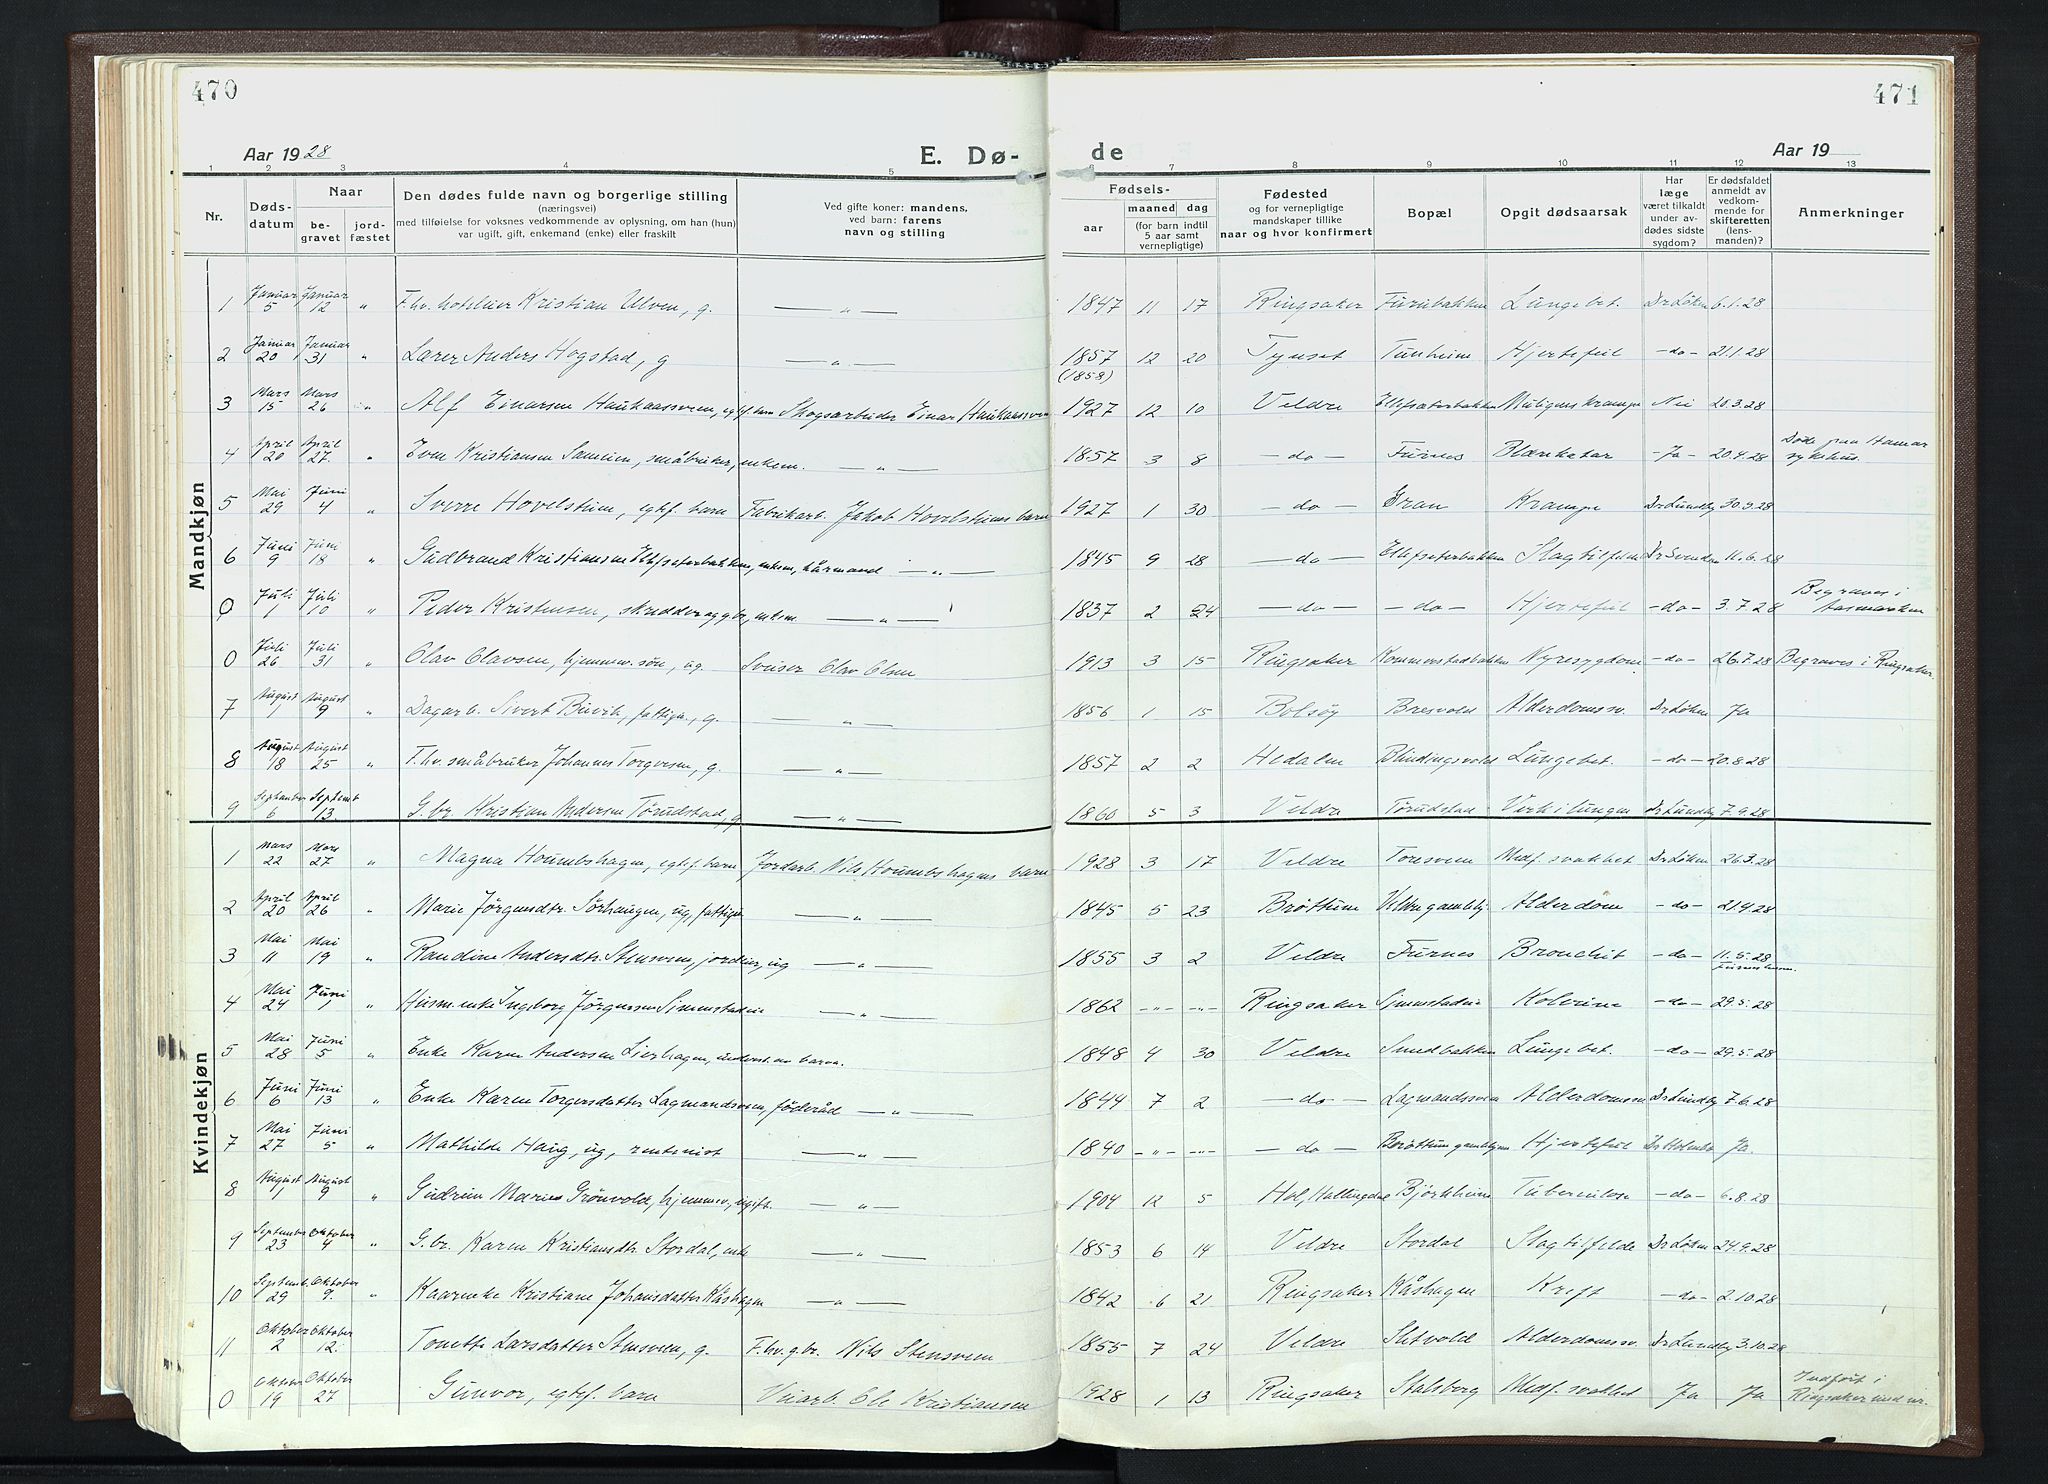 470
471
Aar 1928
E. Dø-
de
Aar 19
1 2 3 4 5 6 7 8 9 10 11 12 13
Nr.
Døds-
datum
Naar
be-
gravet
jord-
fæstet
Den dødes fulde navn og borgerlige stilling
(næringsvei)
med tilføielse for voksnes vedkommende av oplysning, om han (hun)
var ugift, gift, enkemand (enke) eller fraskilt
Ved gifte koner: mandens,
ved barn: farens
navn og stilling
Fødsels-
aar
maaned dag
(for barn indtil
5 aar samt
vernepligtige)
Fødested
og for vernepligtige
mandskaper tillike
naar og hvor konfirmert
Bopæl
Opgit dødsaarsak
Har
læge
været tilkaldt
under av-
dødes sidste
sygdom?
Er dødsfaldet
anmeldt av
vedkom-
mende for
skifteretten
(lens-
manden)?
Anmerkninger
Mandkjøn
1 Januar 5 Januar 12 " F. hv. hotelier Kristian Ulven, g. — " — 1847 11 17 Ringsaker Furubakken Lungebet. Dr Løken 6.1.28
2 Januar 20 Januar 31 " Lærer Anders Hogstad, g — " — 1857 (1858) 12 20 Tynset Tunheim Hjertefeil — do — 21.1.28
3 Mars 15 Mars 26 " Alf Einarsen Haukaassveen, egtef. barn Skogsarbeider Einar Haukaassveen 1927 12 10 Veldre Krampe Nei 20.3.28
4 April 20 April 27 " Even Kristiansen, småbruker, enkem. — " — 1857 3 8 — do — Furnes Blærekatar — Ja — 20.4.28 Døde paa Hamar sykehus.
5 Mai 29 Juni 4 " Sverre Hovelsrud, egtf. barn Fabrikarb. Jakob barn 1927 1 30 — do — Gran Krampe Dr Lundby 30.5.28
6 Juni 9 Juni 18 " Gudbrand Kristiansen, enkem, kårmand — " — 1845 9 28 — do — Slagtilfelde Dr Svendsen 11.6.28
0 Juli 1 Juli 10 " Peder Kristensen, skredder og gbr, enkem. — " — 1837 2 24 — do — — do — Hjertefeil — do — 3.7.28 Begraves i Aasmarken
0 Juli 26 Juli 31 " Olav Olavsen, hjemmev. søn, ug. Sveiser Olav Olsen 1913 3 15 Ringsaker Kommerstadbakken Nyresygdom — do — 26.7.28 Begraves i Ringsaker.
7 August 1 August 9 " Dagarb. Sivert Buvik, fattigu., g. — " — 1856 1 15 Bolsøy Bresvold Alderdomssv. Dr Løken Ja
8 August 18 August 25 " F. hv. småbruker Johannes Torgersen, g. — " — 1857 2 2 Hedalen Blindingsvold Lungebet. — do — 20.8.28
9 September 6 Septemb 13 G.br. Kristian Andersen Tørudstad, g — " — 1860 5 3 Veldre Tørudstad Verk i lungen Dr Lundby 7.9.28
Kvindekjøn
1 Mars 22 Mars 27 " Magna Houmbshagen, egtf. barn Jordarb. Nils Houmbshagens barn 1928 3 17 Veldre Toresveen Medf. svakhet Dr Løken 26.3.28
2 April 20 April 26 " Marie Jørgensdtr. Sørhaugen, ug, fattigu — " — 1845 5 23 Brøttum Alderdom — do — 21.4.28
3 Mai 11 Mai 19 " Randine Andersdtr. Stensveen, ug — " — 1855 3 2 Veldre Furnes Bronchit — do — 11.5.28
4 Mai 24 Juni 1 " Husm.enke Ingeborg Jørgensen Simenstadeie — " — 1862 — " — — " — Ringsaker Simenstadeie — do — 29.5.28
5 Mai 28 Juni 5 " Enke Karen Andersen Lierhagen, underst. av barna. 1848 4 30 Veldre Smedbakken Lungebet. — do — 29.5.28
6 Juni 6 Juni 13 " Enke Karen Torgersdatter Lagmandsveen, føderåd — " — 1844 7 2 — do — Lagmandsveen Alderdomssv. Dr Lundby 7.6.28
7 Mai 27 Juni 5 " Mathilde Haug, ug, rentenist — " — 1840 — " — — " — — do — Brøttum gamlehjem Hjertefeil Dr Holmbo Ja
8 August 1 August 9 " Gudrun Marie Grønvold, hjemmev, ugift. — " — 1904 12 5 Hol, Hallingdal Bjørkheim Tuberculose — do — 6.8.28
9 September 23 Oktober 4 " G.br. Karen Kristiansdtr. Stordal, enke — " — 1853 6 14 Veldre Stordal Slagtilfelde Dr Løken 24.9.28
10 Septemb. 29 Oktober 9. " Kaarenke Kristiane Johansdatter Kåshagen — " — 1842 6 21 Ringsaker Kåshagen Kreft — do — 2.10.28
11 Oktober 2 Oktober 12. Tonette Larsdatter Stensveen, g. F. hv. g.br. Nils Stensveen 1855 7 24 Veldre Slitvold Alderdomssv. Dr Lundby 3.10.28
0 Oktober 19 Oktober 27 Gunvor, egtf. barn Veiarb. Ole Kristiansen 1928 1 13 Ringsaker Stalsberg Medf. svakhet Ja Ja Indført i Ringsaker med nr.